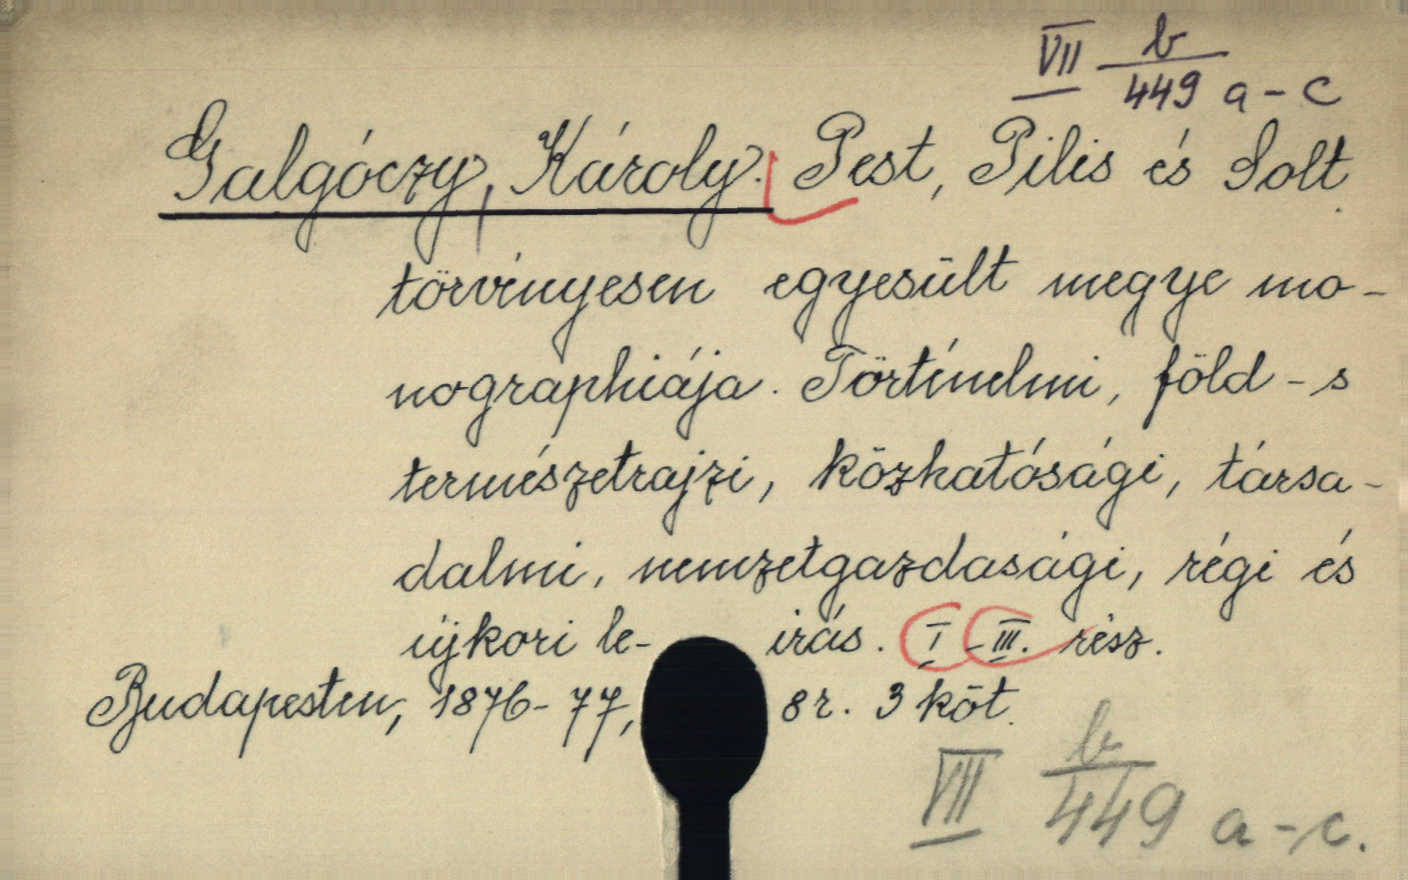 VII b/449 a-c
Galgóczy, Károly. Pest, Pilis és Solt
törvényesen egyesült megye mo-
nographiája. Történelmi, föld- s
természetrajzi, közhatósági, társa-
dalmi, nemzetgazdasági, régi és
újkori le- irás. I-III. rész.
Budapesten, 1876-77, 8r. 3 köt.
VII b/449 a-c.